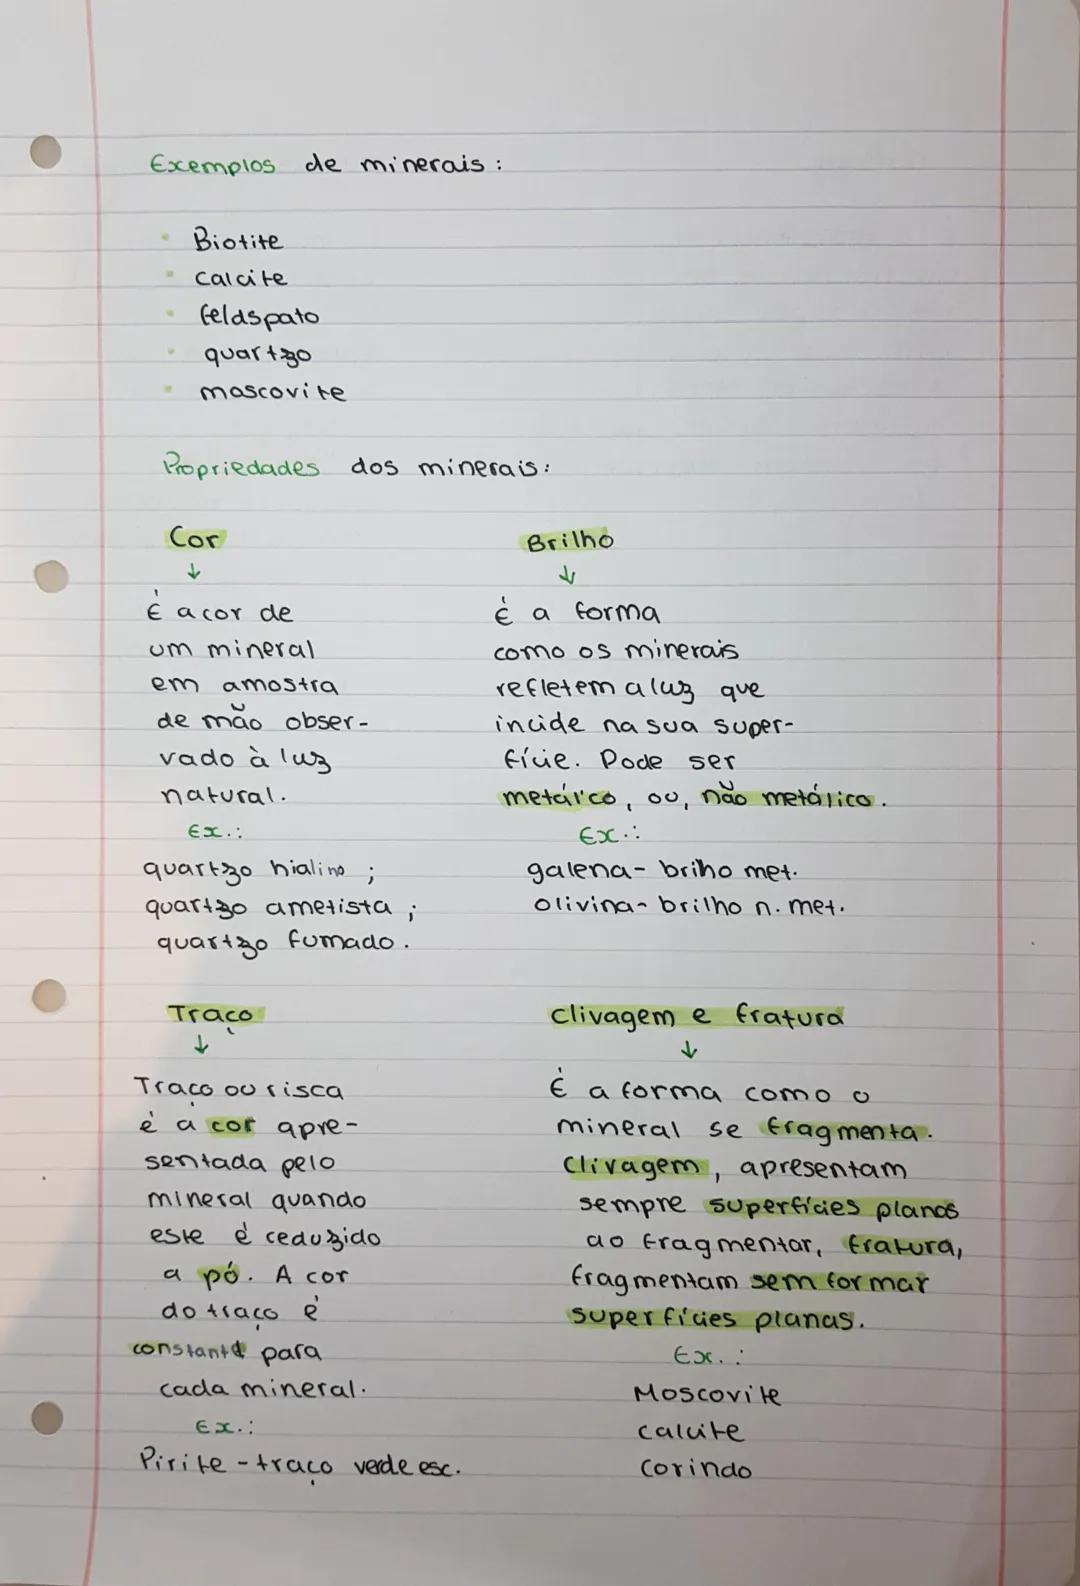 Exemplos de minerais:
• Biotite
• calcite
• feldspato
• quartzo
• moscovite
Propriedades dos minerais:
Cor
↓
É a cor de
um mineral
em amostra
de mão obser-
vado à luz
natural.
Ex.:
quartzo hialino;
quartzo ametista;
quartzo fumado.
Brilho
↓
é a forma
como os minerais
refletem a luz que
incide na sua super-
fície. Pode ser
metálico, ou, não metálico.
Ex.:
galena- briho met.
olivina- brilho n. met.
Traço
↓
Traço ou risca
é a cor apre-
sentada pelo
mineral quando
este é reduzido
a pó. A cor
do traço é
constante para
cada mineral.
Ex.:
Pirite - traço verde esc.
clivagem e fratura
↓
É a forma como o
mineral se fragmenta.
Clivagem, apresentam
sempre superfícies planas
ao fragmentar, fratura,
fragmentam sem formar
superfícies planas.
Ex.:
Moscovite
calcite
corindo